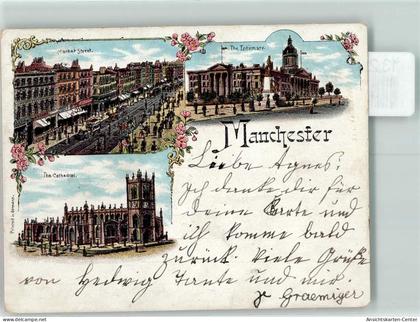 Market Street.
The Infirmary.
Manchester
The Cathedral.
Printed in Germany.
Liebe Agnes!
Ich danke dir für
deine Karte und
ich komme bald
zurück. Viele Grüße
von Hedwig Tante und mir.
Graemiger
Ansichtskarten-Center